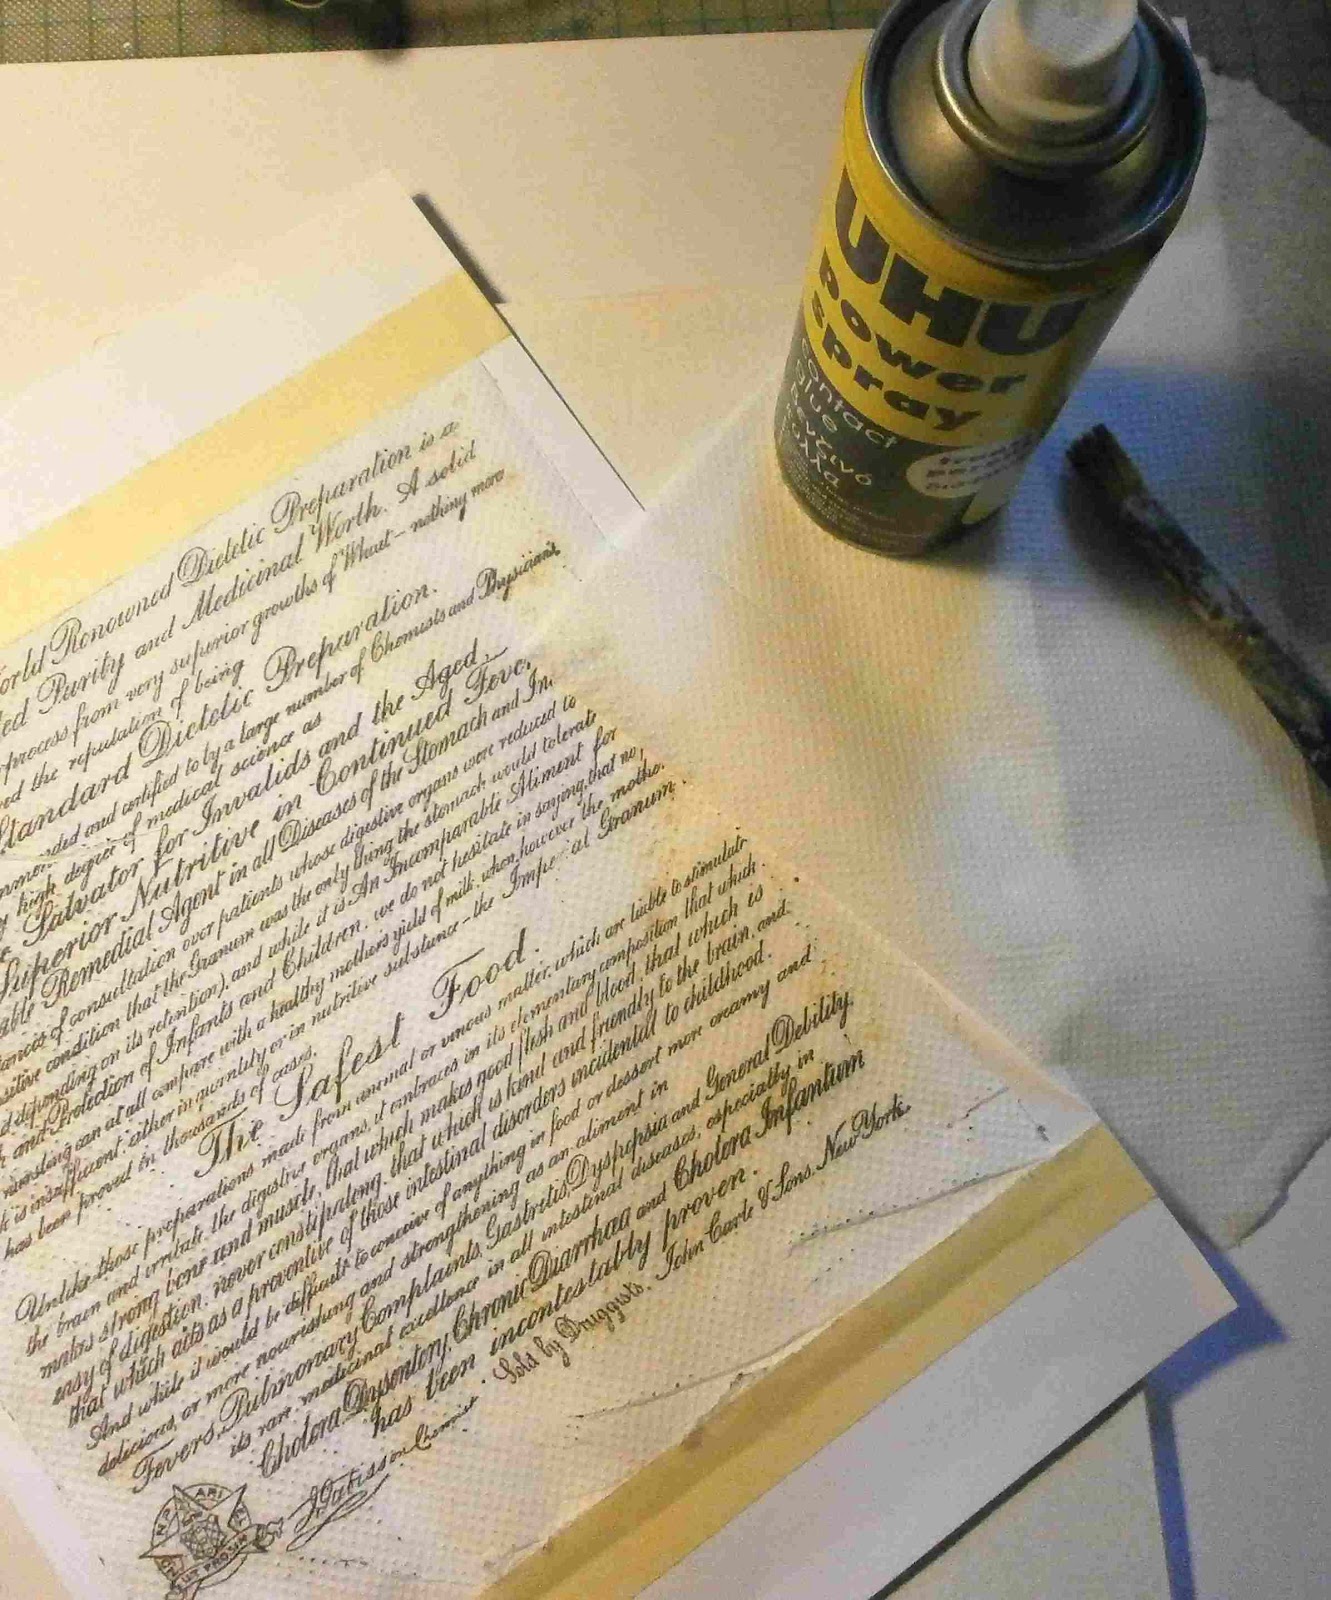 UHU
power
spray
contact
glue
orld Renowned Dietetic Preparation is a
ed Purity and Medicinal Worth. A solid
process from very superior growths of Wheat – nothing more
ed the reputation of being
Standard Dietetic Preparation.
nded and certified to by a large number of Chemists and Physicians,
high degree of medical science as
Salvator for Invalids and the Aged.
Superior Nutritive in Continued Feve,
able Remedial Agent in all Diseases of the Stomach and In,
tances of consultation over patients whose digestive organs were reduced to
sitive condition that the Granum was the only thing the stomach would tolerate
d depending on its retention), and while it is An Incomparable Aliment for
and Protection of Infants and Children, we do not hesitate in saying, that no,
nursling can at all compare with a healthy mothers yield of milk, when, however the mothe,
k is insufficient either in quantity or in nutritive substance – the Imperial Granum
has been proved in thousands of cases.
The Safest Food.
Unlike those preparations made from animal or vinous matter, which are liable to stimulate
the brain and irritate the digestive organs, it embraces in its elementary composition that which
makes strong bone and muscle, that which makes good flesh and blood, that which is
easy of digestion, never constipating, that which is kind and friendly to the brain, and
that which acts as a preventive of those intestinal disorders incidental to childhood.
And while it would be difficult to conceive of anything in food or dessert more creamy and
delicious, or more nourishing and strengthening as an aliment in
Fevers, Pulmonary Complaints, Gastretis, Dyspepsia and General Debility,
its rare medicinal excellence in all intestinal diseases, especially in
Cholera, Dysentery, Chronic Diarrhœa and Cholera Infantum
has been incontestably proven.
Sold by Druggists. John Carle & Sons. New York.